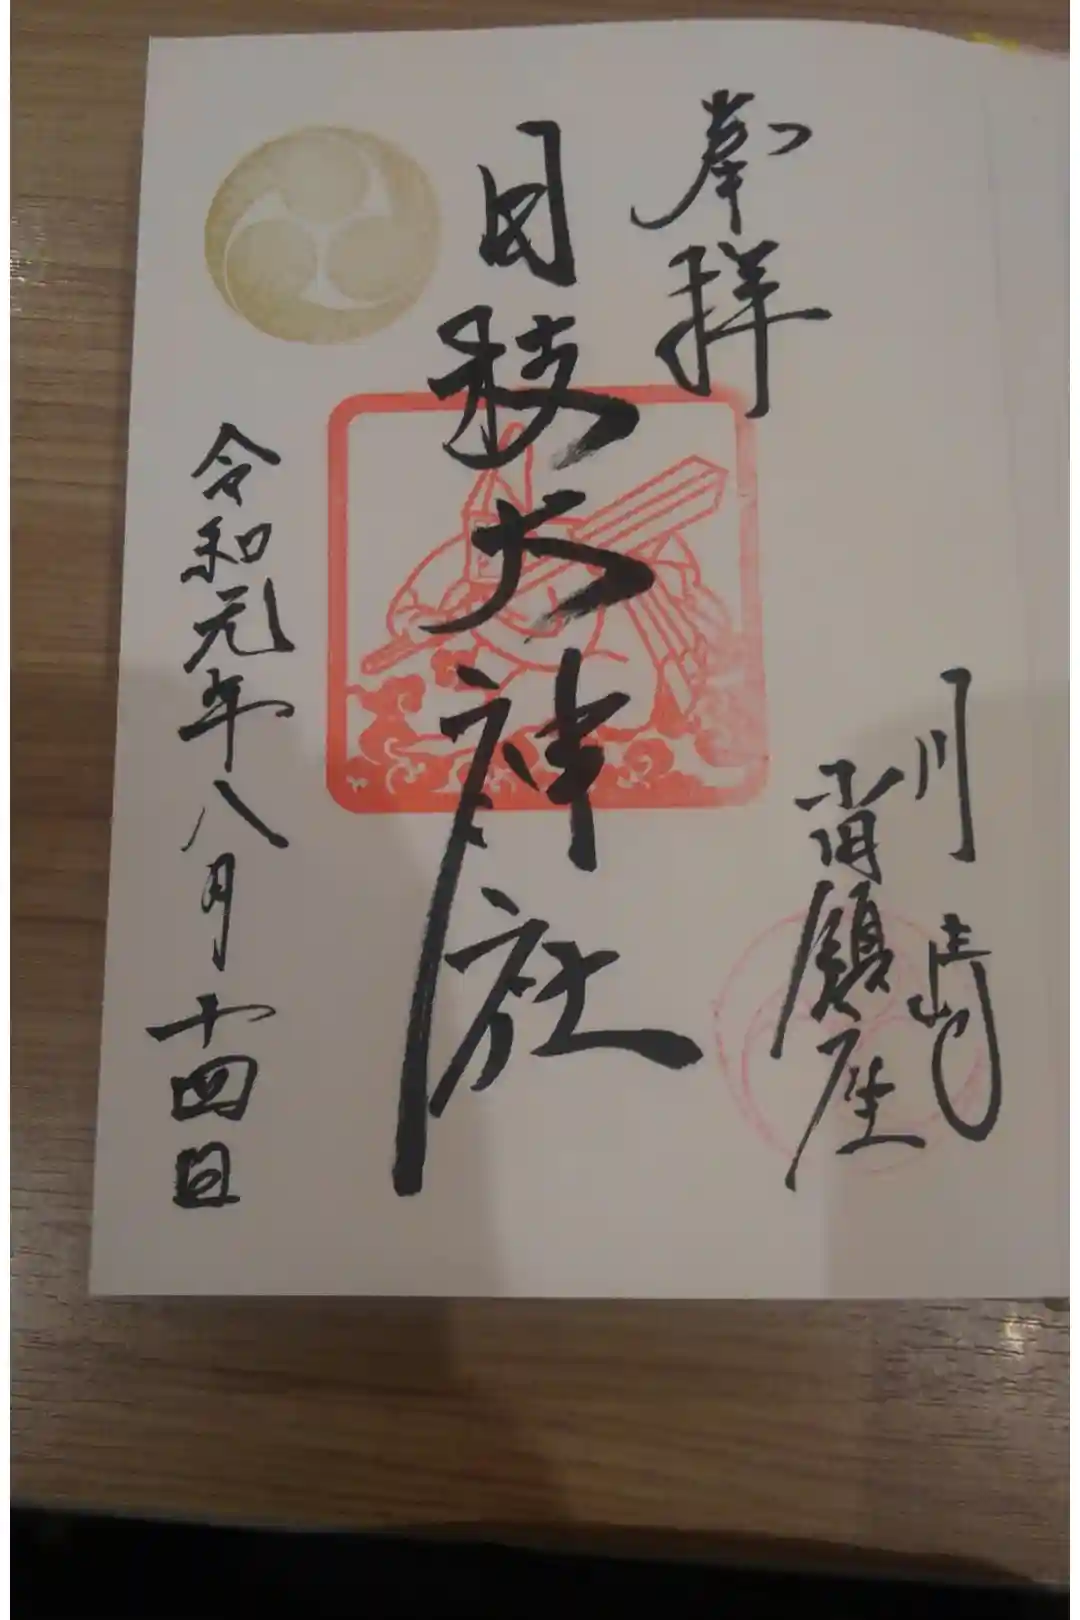 奉拝
川崎
小田鎮座
日枝大神社
令和元年八月十四日